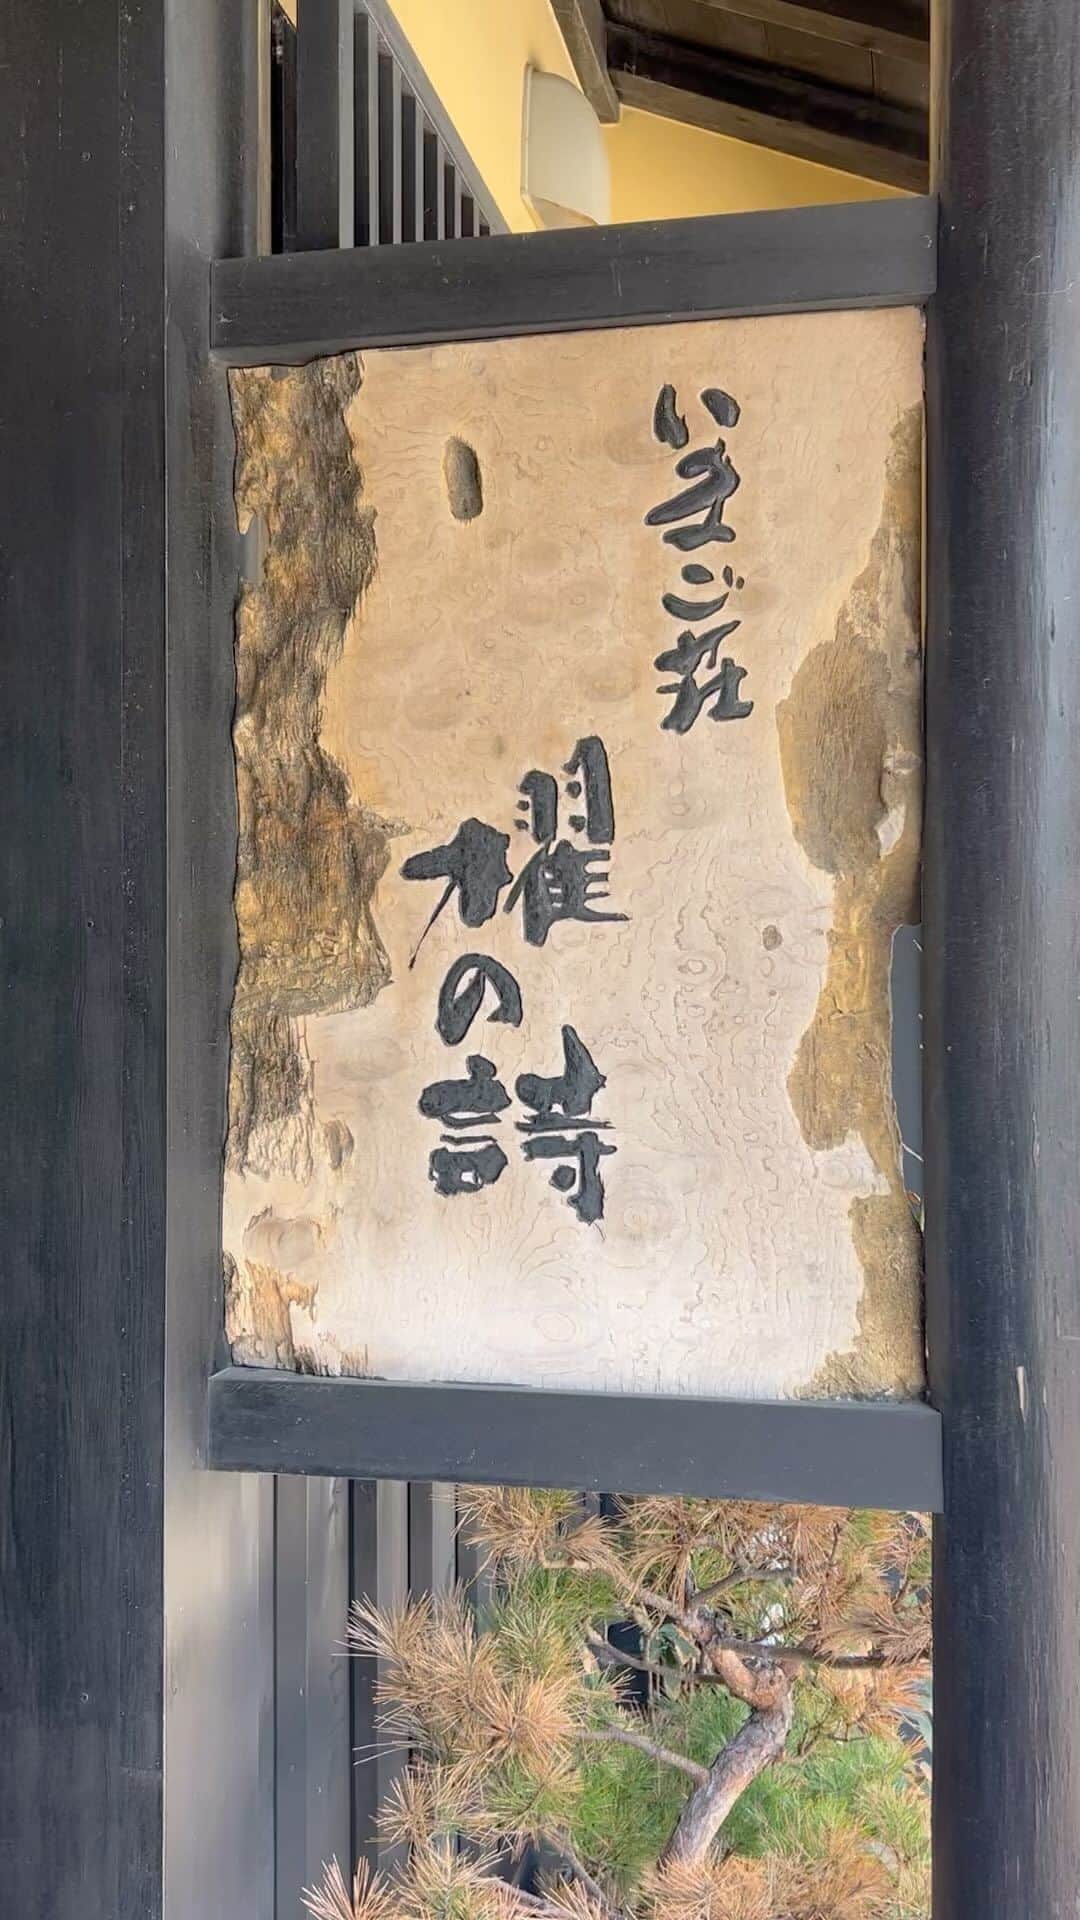 いまご荘
櫂の詩